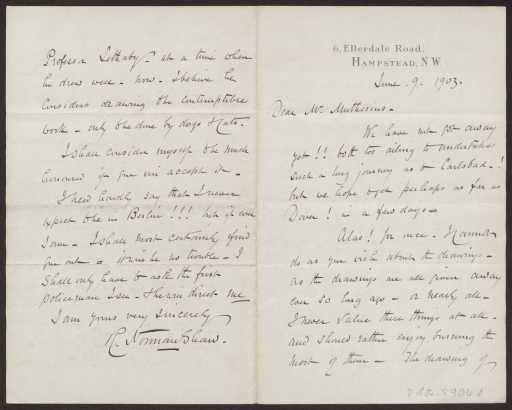 6, Ellerdale Road,
Hampstead, N W
June. 9. 1903.
Dear Mr Muthesius –
We have not got away
yet!! both too ailing to undertake
such a long journey as to Carlsbad –!
but we hope to get perhaps as far as
Dover! in a few days –
Alas! for once – I cannot
do as you wish about the drawings –
as the drawings are all given away
ever so long ago – or nearly all –
I never value these things at all –
and should rather enjoy burning the
most of them – The drawing of
Professor Lethaby – at a time when
he drew well – now – I believe he
considers drawing the contemptible
work – only to be done by dogs & Cats –
I shall consider myself to be much
honoured if you will accept it –
I need hardly say that I never
expect to be in Berlin!!! but if ever
I am – I shall most certainly find
you out – it will be no trouble – I
shall only have to ask the first
policeman I see – & he will direct me
I am yours very sincerely
R. Norman Shaw.